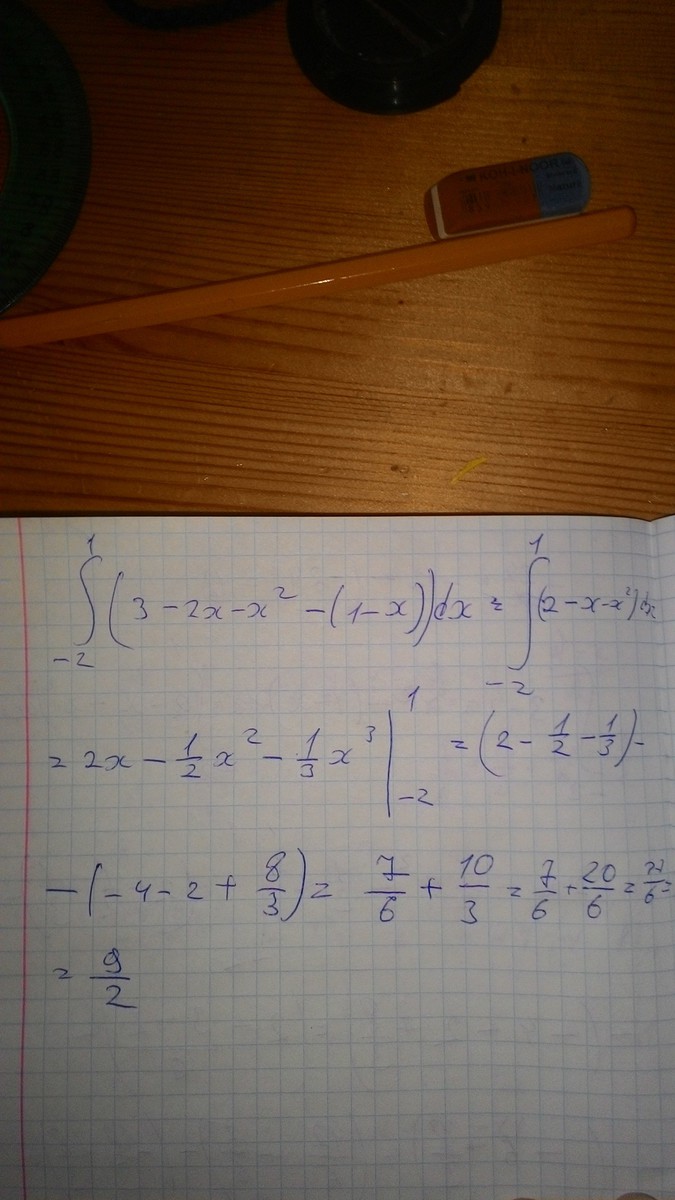 KOH-I-NOOR
∫_{-2}^{1} (3 - 2x - x² - (1 - x))dx = ∫_{-2}^{1} (2 - x - x²)dx
= 2x - 1/2 x² - 1/3 x³ |_{-2}^{1} = (2 - 1/2 - 1/3) -
- (-4 - 2 + 8/3) = 7/6 + 10/3 = 7/6 + 20/6 = 27/6 =
= 9/2